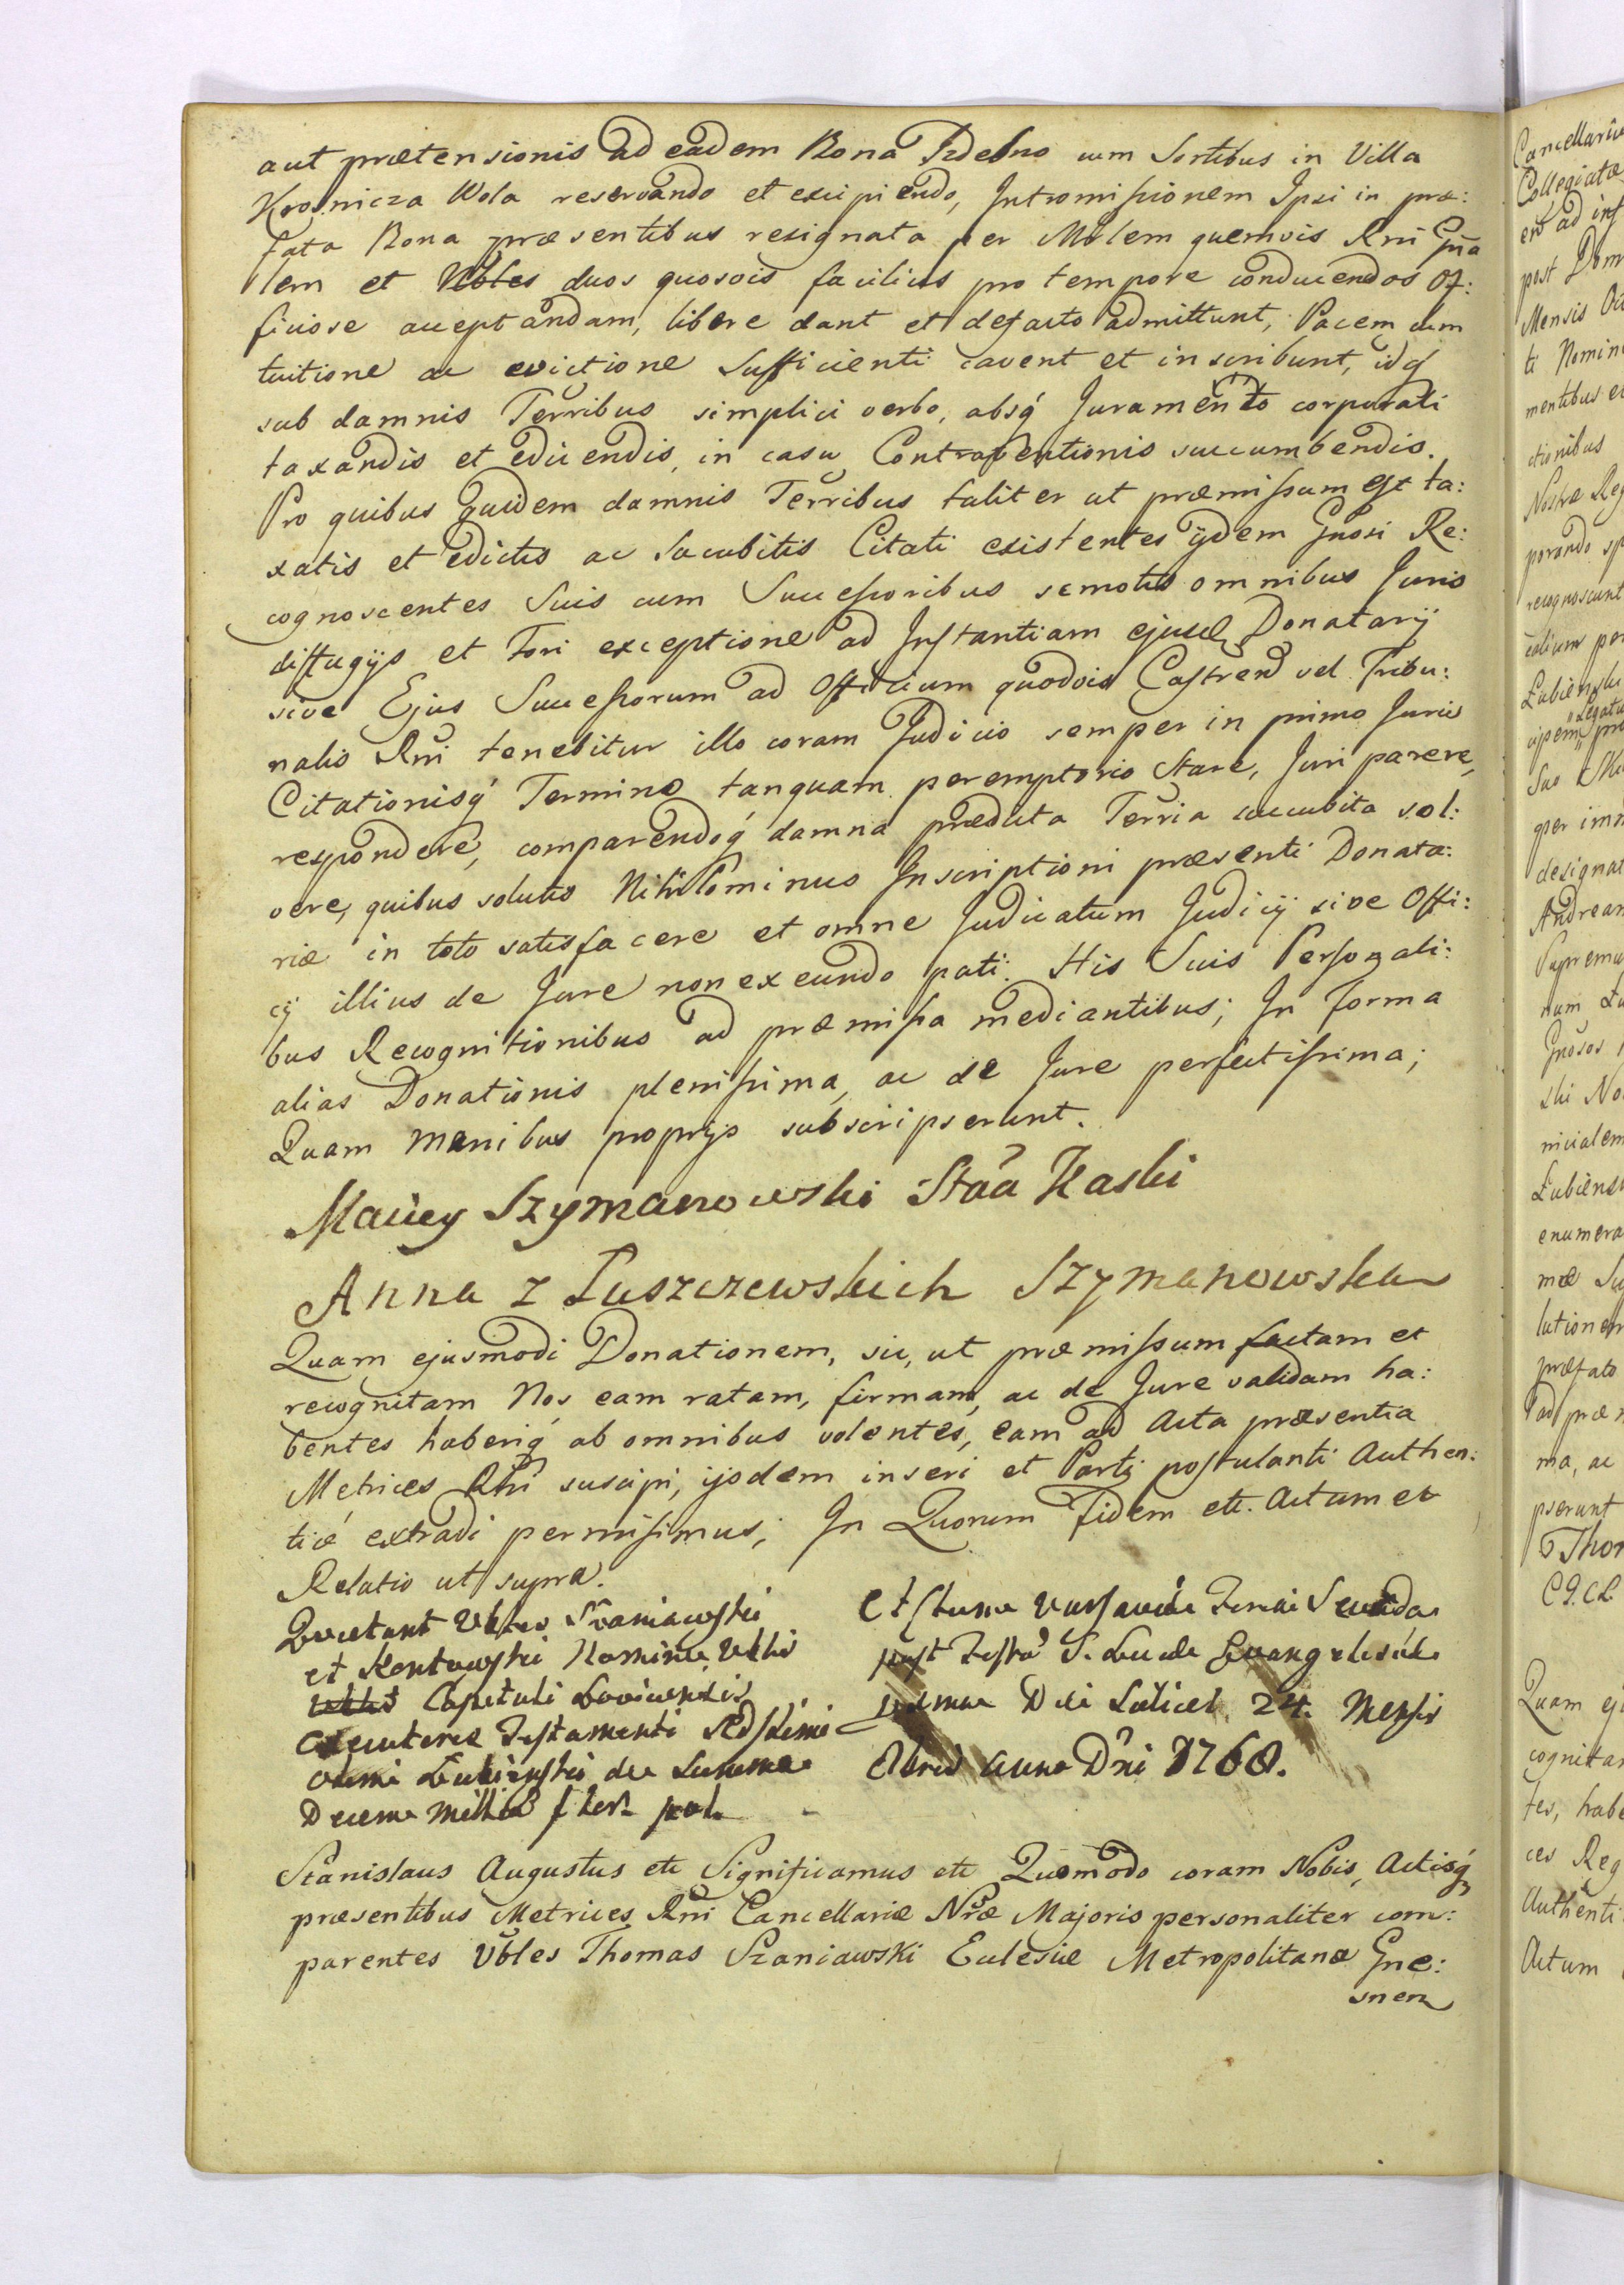 aut prætensionis ad eadem Bona Izdebno cum Sortibus in Villa
Krosnicza Wola reservando et excipiendo, Intromissionem Ipsi in præ:
fata Bona præsentibus resignata per Mnlem quemvis Rni Gña
lem et Nobles duos quosvis facilius pro tempore conducendos Of:
ficiose acceptandam, libere dant et defacto admittunt, Pacem cum
tuitione ac evictione Sufficienti cavent et inscribunt, idq
sub damnis Terribus simplici verbo, absq Juramento corporali
taxandis et edicendis, in casu Contraventionis succumbendis.
Pro quibus quidem damnis Terribus taliter ut præmissum est ta:
xatis et edictis ac Sucubitis Citati existentes ijdem Gnosi Re:
cognoscentes Suis cum Successoribus semotis omnibus Juris
diffugijs et Fori exceptione ad Instantiam ejusd Donatarij
sive Ejus Successorum ad Officium quodvis Castren vel Tribu:
nalis Rni tenebitur illo coram Judicio semper in primo Juris
Citationisq Termino tanquam peremptorio Stare, Juri parere,
respondere, comparendoq damna prædicta Terria succubita sol:
vere, quibus solutis Nihilominus Inscriptioni præsenti Donato:
riæ in toto satisfacere et omne Judicatum Judicij sive Offi:
cij illius de Jure non exeundo pati. His Suis Personali:
bus Recognitionibus ad præmissa mediantibus; In Forma
alias Donationis plenissima, ac de Jure perfectissima;
Quam manibus proprijs subscripserunt.
Maciey Szymanowski Staa Kaski
Anna z Łuszczewskich Szymanowska
Quam ejusmodi Donationem, sic, ut præmissum factam et
recognitam Nos eam ratam, firmam, ac de Jure validam ha:
bentes haberiq ab omnibus volentes, eam ad Acta præsentia
Metrices Rni suscipi, ijsdem inseri et Parti postulanti Authen:
tice extradi permisimus; In Quorum Fidem ett. Actum et
Relatio ut supra.
Quietant Vbles Szaniawski
et Kontowski Nomine Vblis
Capituli Lovicensis
Executores Testamenti
olim Łubienski de Summa
Decem Millia flor. pol.
Actum Varsaviæ Feria Secunda
post Festa S. Lucæ Evangelistæ
proxima Die Scilicet 24. Mensis
Octobris Anno Dni 1768.
Stanislaus Augustus ett Significamus ett Quomodo coram Nobis, Actisq
præsentibus Metrices Rni Cancellariæ Nræ Majoris personaliter com:
parentes Vbles Thomas Szaniawski Eclesiæ Metropolitanæ Gne:
snen
Cancellarius
Collegiatæ
post Dom
Mensis Oct
ti Nomin
mentibus et
ctionibus
Nostræ Reg
recognoscunt
Łubienski
designat
Andream
Supremu
Gnosos
nicialem
Łubiensk
enumera
lutionem
præfato
ad præm
ma, ac
pserunt
Thom
Quam ej
cognitam
tes, habe
ces Reg
Authenti
Actum